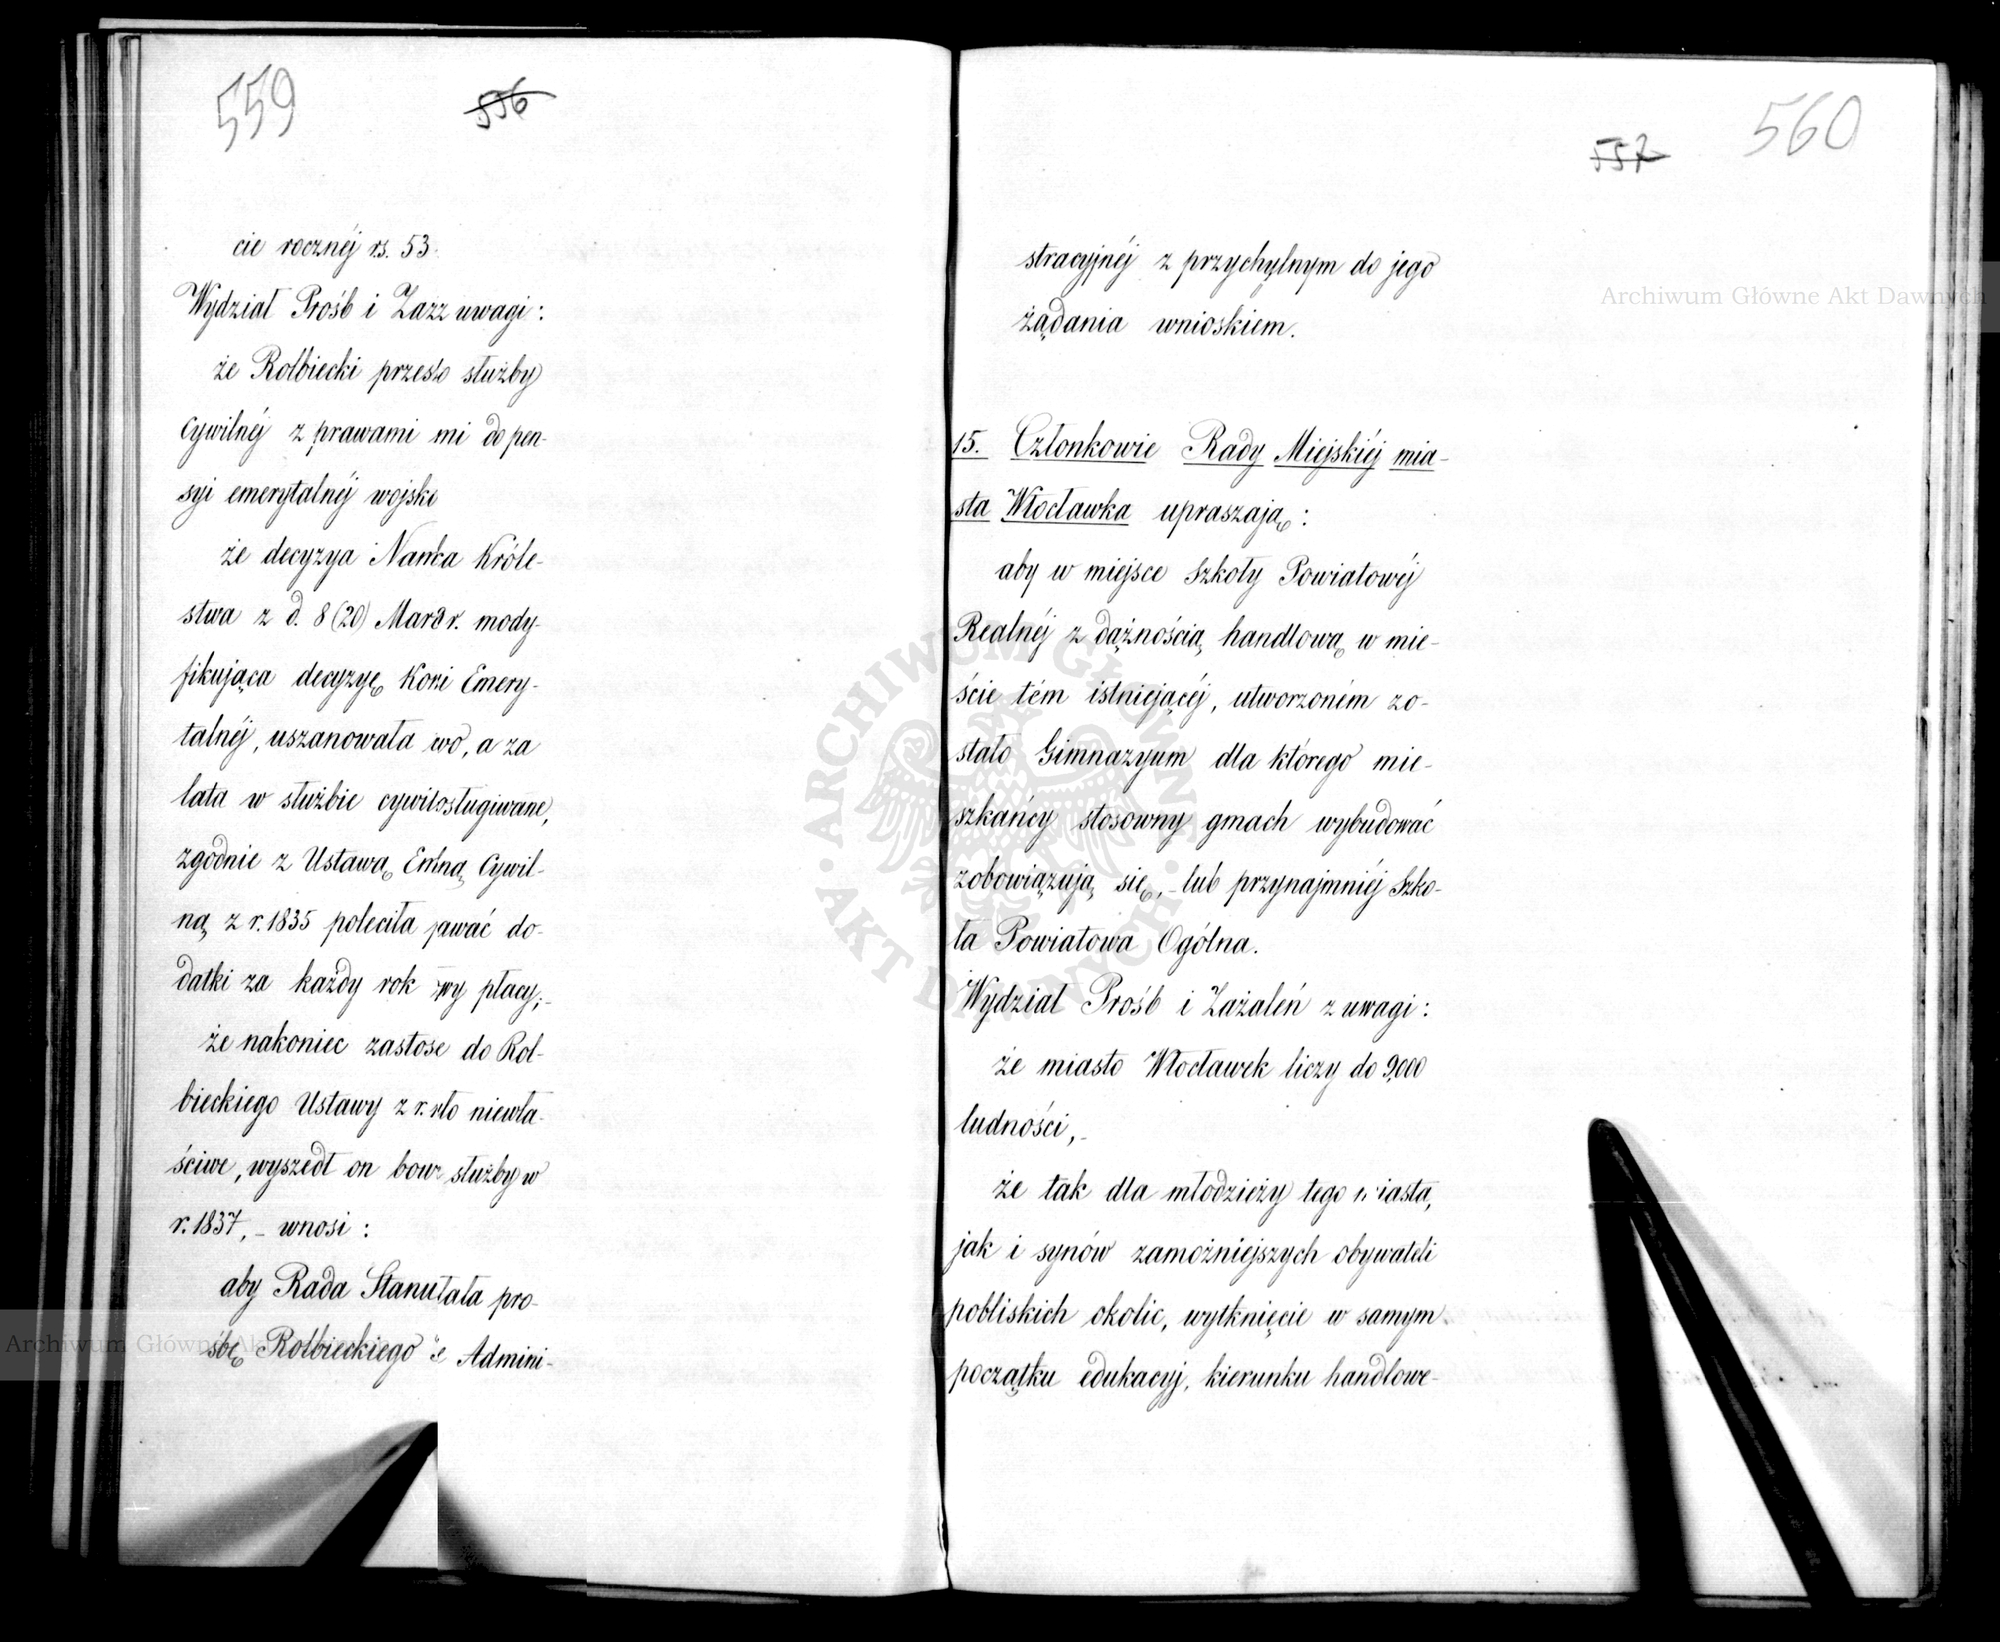 559
556
cie rocznéj rs. 53.
Wydział Prośb i Zazz uwagi:
że Rolbiecki przeszło służby
Cywilnéj z prawami mi do pen-
syi emerytalnéj wojsko
że decyzya Namca Króle-
stwa z d. 8 (20) Mar r. mody-
fikująca decyzyę Komi Emery-
talnéj, uszanowała wo, a za
lata w służbie cywilosługiwane,
zgodnie z Ustawą Emną Cywil-
ną z r. 1835 poleciła jawać do-
datki za każdy rok wy płacy;-
że nakoniec zastose do Rol-
bieckiego Ustawy z r. ło niewła-
ściwe, wyszedł on bow służby w
r. 1837, - wnosi:
aby Rada Stanułała pro-
śbę Rolbieckiego ie Admini-
557
560
stracyjnéj z przychylnym do jego
żądania wnioskiem.
15. Członkowie Rady Miejskiéj mia-
sta Włocławka upraszają:
aby w miejsce Szkoły Powiatowéj
Realnéj z dążnością handlową w mie-
ście tém istniejącéj, utworzoném zo-
stało Gimnazyum dla którego mie-
szkańcy stosowny gmach wybudować
zobowiązują się, - lub przynajmniéj Szko-
ła Powiatowa Ogólna.
Wydział Prośb i Zażaleń z uwagi:
że miasto Włocławek liczy do 9,000
ludności, -
że tak dla młodzieży tego miasta,
jak i synów zamożniejszych obywateli
pobliskich okolic, wytknięcie w samym
początku edukacyj, kierunku handlowe-
Archiwum Główne Akt Dawnych
Archiwum Główne Akt Dawnych
ARCHIWUM GŁÓWNE AKT DAWNYCH